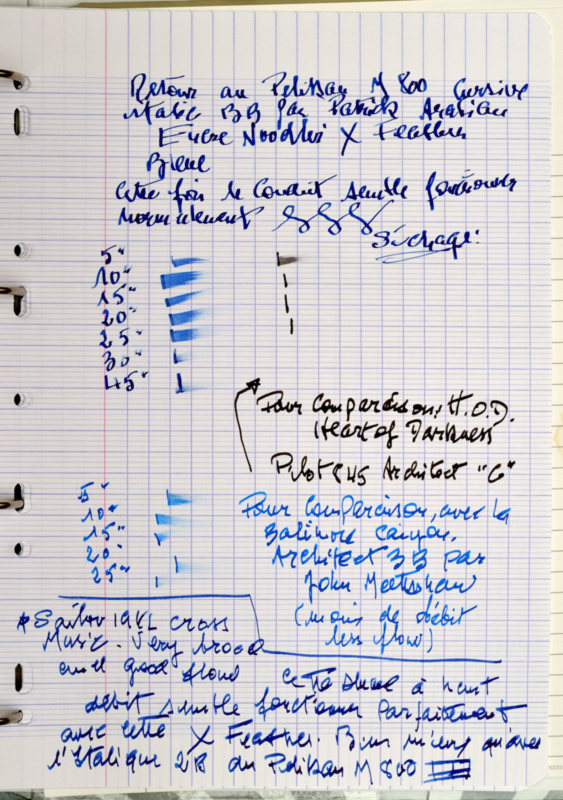 Retour au Pelikan M 800 Cursive
italic BB par Patrick
Encre Noodler X Feather
Blue
cette fois le conduit semble fonctionner
normalement
Séchage:
5"
10"
15"
20"
25"
30"
45"
Pour comparaison: H.O.D.
(Heart of Darkness
Pilot 845 Architect "G"
5"
10"
15"
20"
25"
Pour comparaison, avec la
Architect BB par
John
(moins de débit
less flow)
* Sailor 1911L cross
Music. Very broad
and good flow
Cette à haut
débit semble fonctionner parfaitement
avec cette X Feather. Bien mieux qu'avec
l'Italique 2B du Pelikan M 800